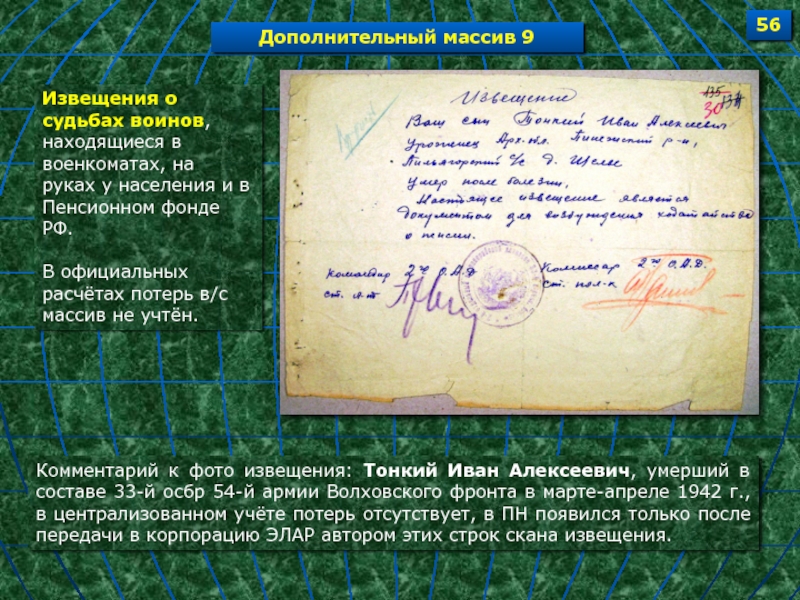 56
Дополнительный массив 9
Извещения о
судьбах воинов,
находящиеся в
военкоматах, на
руках у населения и в
Пенсионном фонде
РФ.
В официальных
расчётах потерь в/с
массив не учтён.
135
30
Извещение
Ваш сын Тонкий Иван Алексеевич
уроженец Арх. обл. Пинежский р-н,
Пильегорский с/с д. Щелье
умер после болезни,
Настоящее извещение является
документом для возбуждения ходатайства
о пенсии.
Командир 2го О.А.Д
ст. л-т
Комиссар 2го О.А.Д.
ст. пол-к
Комментарий к фото извещения: Тонкий Иван Алексеевич, умерший в
составе 33-й осбр 54-й армии Волховского фронта в марте-апреле 1942 г.,
в централизованном учёте потерь отсутствует, в ПН появился только после
передачи в корпорацию ЭЛАР автором этих строк скана извещения.